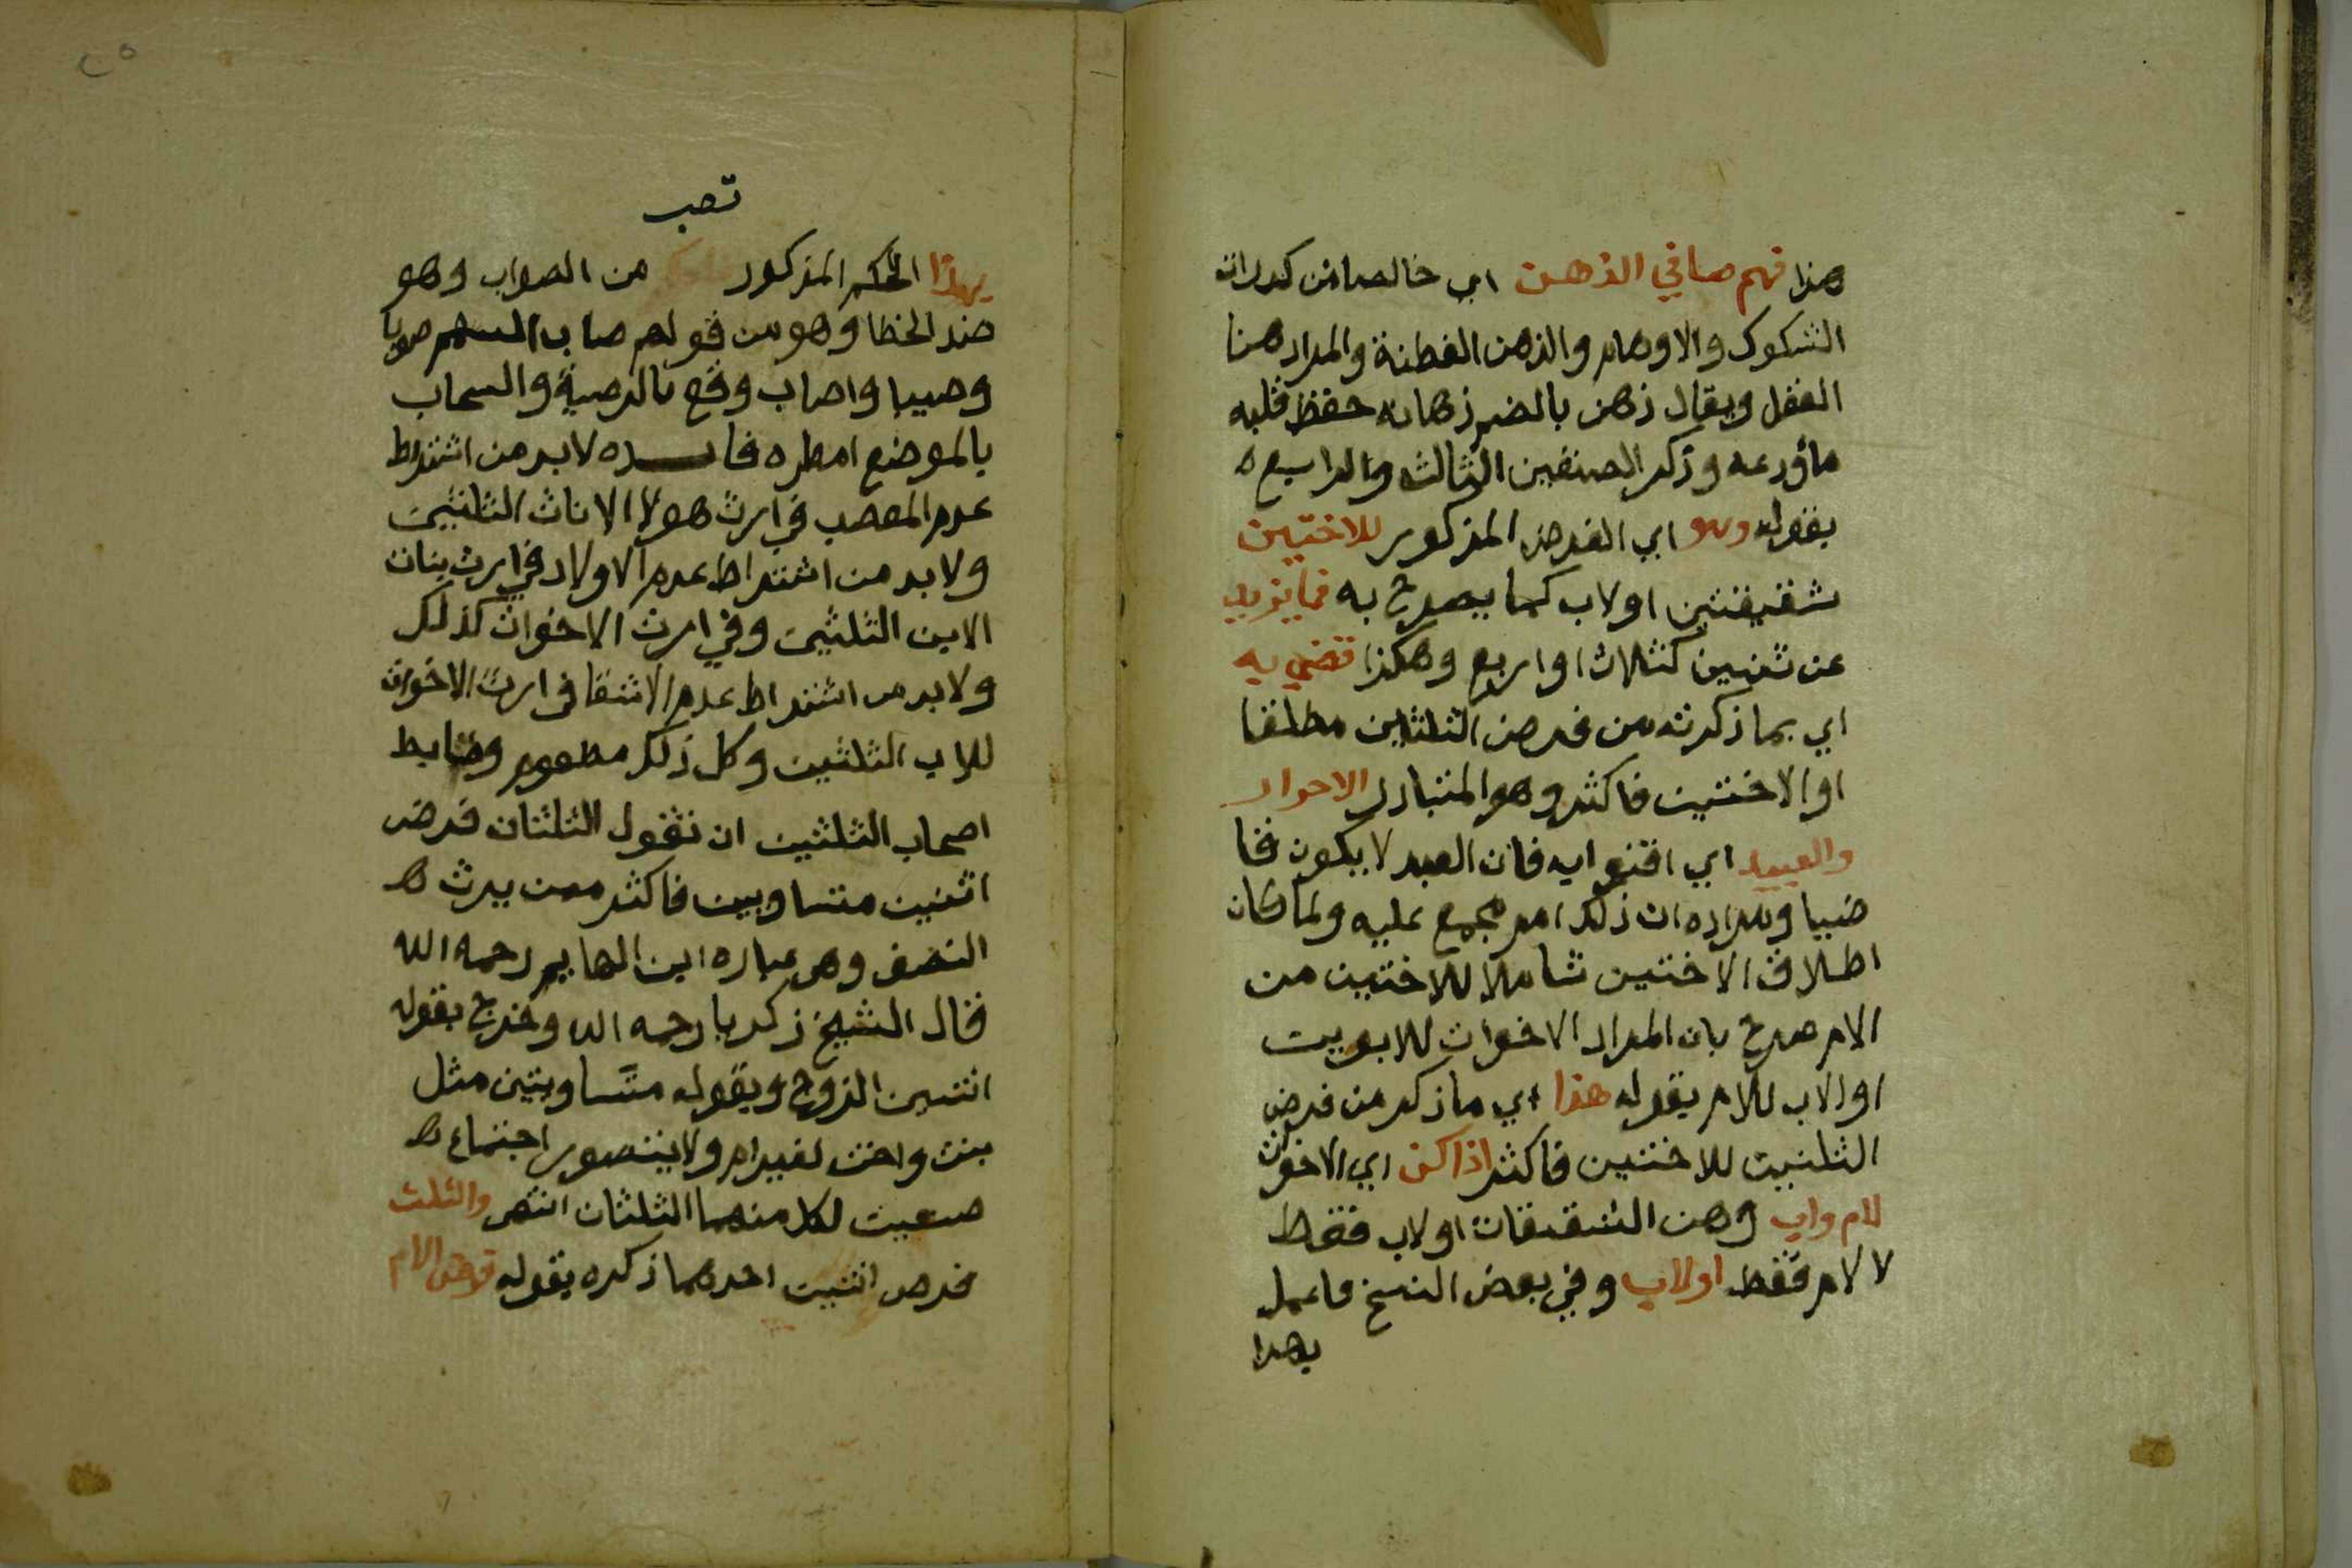 هذا فهم صافي الذهن اي خالصا من كدرات
الشكوك والاوهام والذهن الفطنة والمراد هنا
العقل ويقال ذهن بالضم ذهانه حفظ قلبه
ما أودعه وذكر الصنفين الثالث والرابع ه
بقوله وهو اي الفرض المذكور للاختين
شقيقتين اولاب كما يصرح به فما يزيد
عن ثنتين كثلاث او اربع وهكذا قضي به
اي بما ذكرته من فرض الثلثين مطلقا
او الاختين فاكثر وهو المتبادر الاحرار
والعبيد اي افتوا به فان العبد لا يكون قا
ضيا ومراده ان ذلك امر مجمع عليه ولما كان
اطلاق الاختين شاملا للاختين من
الام صرح بان المراد الاخوات للابوين
او الاب لا للام بقوله هذا اي ما ذكر من فرض
الثلثين للاختين فاكثر اذا كن اي الاخوات
لام واب وهن الشقيقات اولاب فقط
لا لام فقط اولاب وفي بعض النسخ فاعمل
بهذا
٢٥
تصب
بهذا الحكم المذكور من الصواب وهو
ضد الخطا وهو من قولهم صاب السهم صوبا
وصيبا واصاب وقع بالرمية والسحاب
بالموضع امطره فايـــده لابد من اشتراط
عدم المعصب في ارث هولا الاناث الثلثين
ولا بد من اشتراط عدم الاولاد في ارث بنات
الابن الثلثين وفي ارث الاخوات كذلك
ولا بد من اشتراط عدم الاشقا في ارث الاخوات
للاب الثلثين وكل ذلك معلوم وضابط
اصحاب الثلثين ان تقول الثلثان فرض
اثنين متساويين فاكثر ممن يرث ه
النصف وهي عباره ابن الهايم رحمه الله
قال الشيخ زكريا رحمه الله وخرج بقوله
اثنين الزوج وبقوله متساويتين مثل
بنت واخت لغير ام ولا يتصور اجتماع ه
صنفين لكل منهما الثلثان انتهى والثلث
فرض اثنين احدهما ذكره بقوله فرض الام